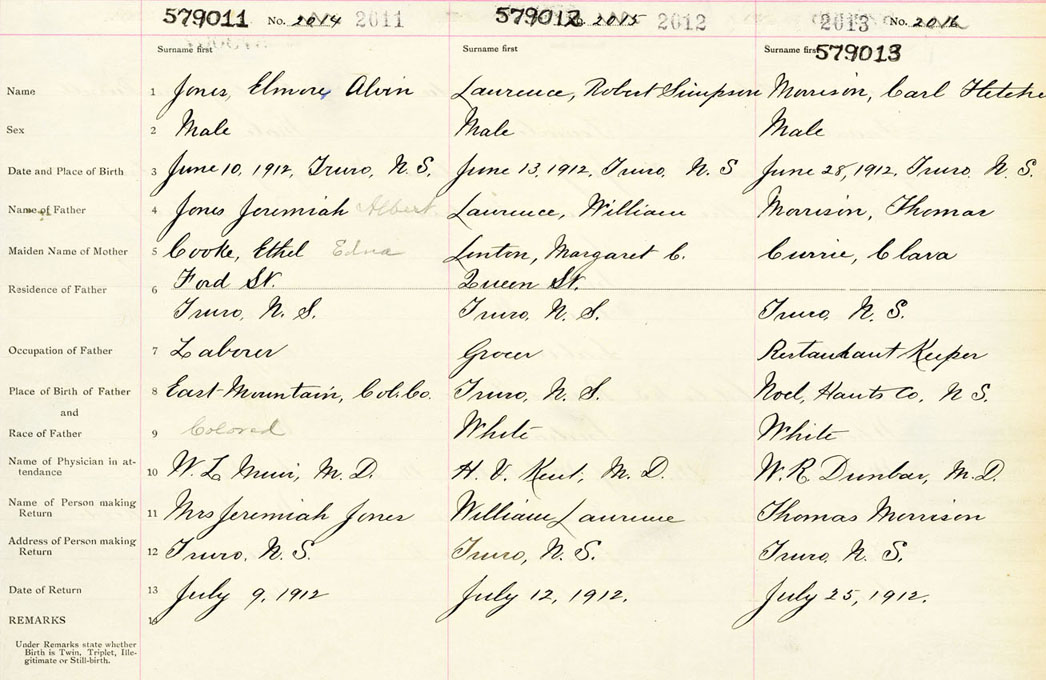 579011 No. 2014 2011 579012 No. 2015 2012 2013 No. 2016
Surname first Surname first Surname first 579013
Name 1 Jones, Elmore Alvin Laurence, Robert Simpson Morrison, Carl Fletche
Sex 2 Male Male Male
Date and Place of Birth 3 June 10, 1912, Truro, N. S. June 13, 1912, Truro, N. S June 28, 1912, Truro, N. S.
Name of Father 4 Jones Jeremiah Albert Laurence, William Morrison, Thomas
Maiden Name of Mother 5 Cooke, Ethel Edna Linton, Margaret C. Currie, Clara
Ford St. Queen St.
Residence of Father 6
Truro, N. S. Truro, N. S. Truro, N. S.
Occupation of Father 7 Laborer Grocer Restauhant Keeper
Place of Birth of Father 8 East Mountain, Col. Co. Truro, N. S. Noel, Hants Co, N S.
and
Race of Father 9 Colored White White
Name of Physician in at-
tendance 10 W. L Muir, M. D. H. V. Kent, M. D. W. R. Dunbar, M. D.
Name of Person making
Return 11 Mrs Jeremiah Jones William Laurence Thomas Morrison
Address of Person making
Return 12 Truro, N. S. Truro, N. S. Truro, N. S.
Date of Return 13 July 9, 1912 July 12, 1912. July 25, 1912.
REMARKS 14
Under Remarks state whether
Birth is Twin, Triplet, Ille-
gitimate or Still-birth.